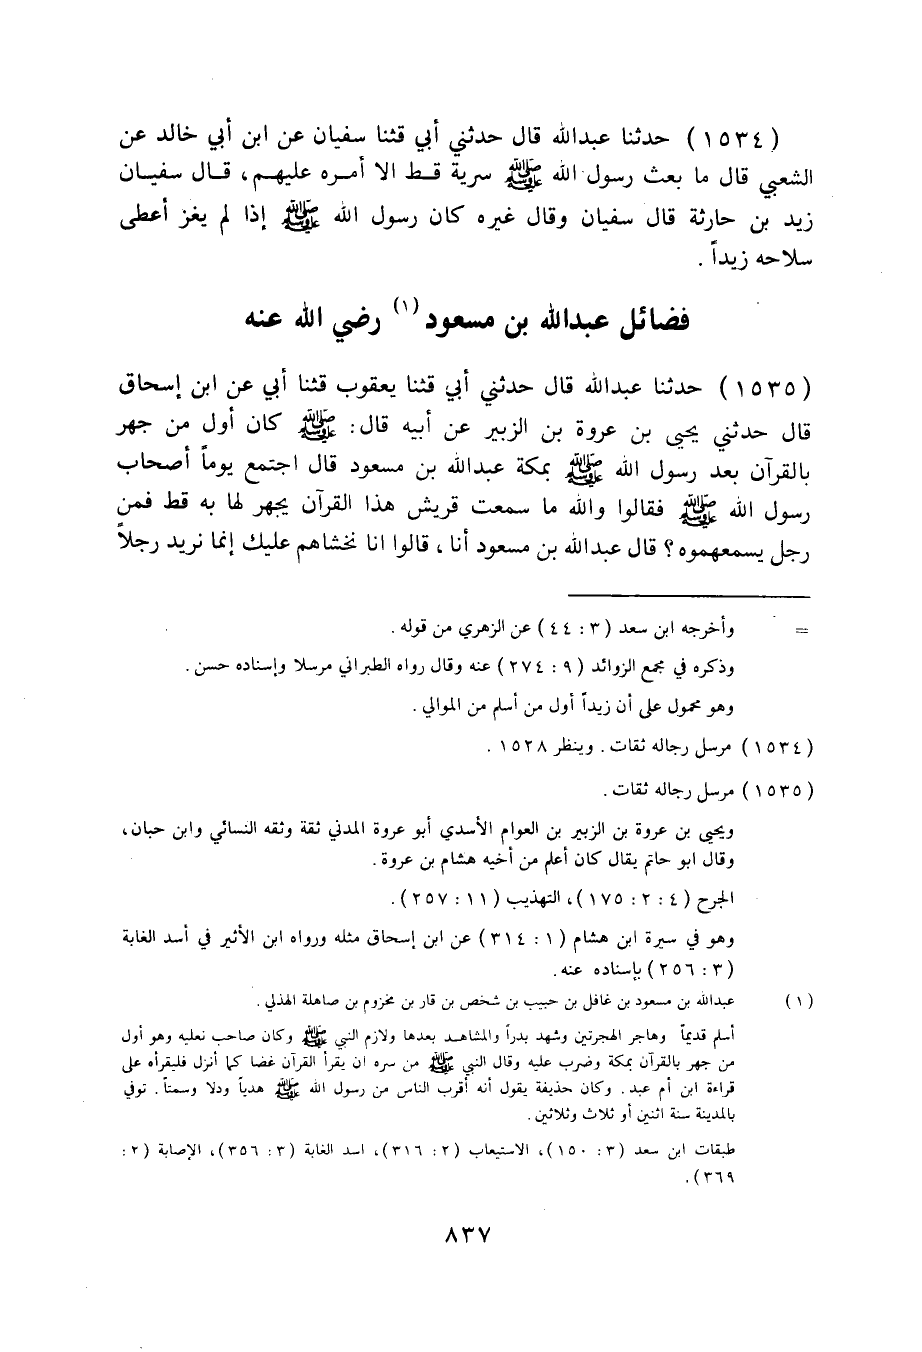 (١٥٣٤) حدثنا عبدالله قال حدثني أبي قثنا سفيان عن ابن أبي خالد عن
الشعبي قال ما بعث رسول الله ﷺ سرية قـط الا أمـره عليهـم، قـال سفيـان
زيد بن حارثة قال سفيان وقال غيره كان رسول الله ﷺ إذا لم يغز أعطى
سلاحه زيداً .
فضائل عبدالله بن مسعود(١) رضي الله عنه
(١٥٣٥) حدثنا عبدالله قال حدثني أبي قثنا يعقوب قثنا أبي عن ابن إسحاق
قال حدثني يحيى بن عروة بن الزبير عن أبيه قال: ﷺ كان أول من جهر
بالقرآن بعد رسول الله ﷺ بمكة عبدالله بن مسعود قال اجتمع يوماً أصحاب
رسول الله ﷺ فقالوا والله ما سمعت قريش هذا القرآن يجهر لها به قط فمن
رجل يسمعهموه؟ قال عبدالله بن مسعود أنا ، قالوا انا نخشاهم عليك إنما نريد رجلاً
= وأخرجه ابن سعد (٣: ٤٤) عن الزهري من قوله .
وذكره في مجمع الزوائد (٩: ٢٧٤) عنه وقال رواه الطبراني مرسلا وإسناده حسن .
وهو محمول على أن زيداً أول من أسلم من الموالي .
(١٥٣٤) مرسل رجاله ثقات . وينظر ١٥٢٨ .
(١٥٣٥) مرسل رجاله ثقات .
ويحيى بن عروة بن الزبير بن العوام الأسدي أبو عروة المدني ثقة وثقه النسائي وابن حبان،
وقال ابو حاتم يقال كان أعلم من أخيه هشام بن عروة .
الجرح (٤: ٢: ١٧٥)، التهذيب (١١: ٢٥٧).
وهو في سيرة ابن هشام (١: ٣١٤) عن ابن إسحاق مثله ورواه ابن الأثير في أسد الغابة
(٣: ٢٥٦) بإسناده عنه .
(١) عبدالله بن مسعود بن غافل بن حبيب بن شخص بن قار بن مخزوم بن صاهلة الهذلي .
أسلم قديماً وهاجر الهجرتين وشهد بدراً والمشاهـد بعدها ولازم النبي ﷺ وكان صاحب نعليه وهو أول
من جهر بالقرآن بمكة وضرب عليه وقال النبي ﷺ من سره ان يقرأ القرآن غضا كما أنزل فليقرأه على
قراءة ابن أم عبد . وكان حذيفة يقول أنه أقرب الناس من رسول الله ﷺ هدياً ودلا وسمتاً . توفي
بالمدينة سنة اثنين أو ثلاث وثلاثين .
طبقات ابن سعد (٣: ١٥٠)، الاستيعاب (٢: ٣١٦)، اسد الغابة (٣: ٣٥٦)، الإصابة (٢:
٣٦٩).
٨٣٧